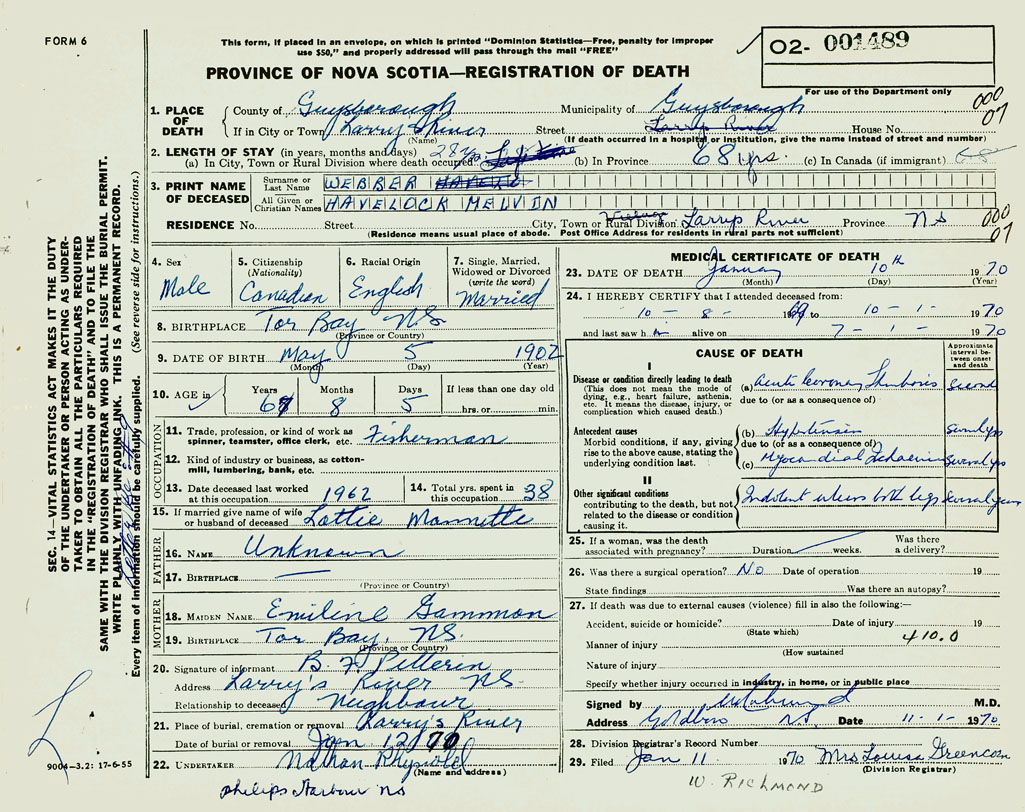 FORM 6
This form, if placed in an envelope, on which is printed "Dominion Statistics—Free, penalty for improper
use $50," and properly addressed will pass through the mail "FREE"
O2- 001489
For use of the Department only
PROVINCE OF NOVA SCOTIA—REGISTRATION OF DEATH
000
07
1. PLACE OF DEATH
County of Guysborough Municipality of Guysborough
If in City or Town Larrys River Street Larrys River House No.
(Name) (If death occurred in a hospital or institution, give the name instead of street and number)
2. LENGTH OF STAY (in years, months and days)
(a) In City, Town or Rural Division where death occurred 28 yrs (b) In Province 68 yrs. (c) In Canada (if immigrant) 68
3. PRINT NAME OF DECEASED
Surname or Last Name WEBBER
All Given or Christian Names HAVELOCK MELVIN
RESIDENCE No. Street City, Town or Rural Division Larrys River Province NS
Village
(Residence means usual place of abode. Post Office Address for residents in rural parts not sufficient)
000
07
4. Sex Male
5. Citizenship (Nationality) Canadian
6. Racial Origin English
7. Single, Married, Widowed or Divorced (write the word) Married
8. BIRTHPLACE Tor Bay NS
(Province or Country)
9. DATE OF BIRTH May 5 1902
(Month) (Day) (Year)
10. AGE in Years 67 Months 8 Days 5 If less than one day old hrs. or min.
OCCUPATION
11. Trade, profession, or kind of work as spinner, teamster, office clerk, etc. Fisherman
12. Kind of industry or business, as cotton-mill, lumbering, bank, etc.
13. Date deceased last worked at this occupation 1962
14. Total yrs. spent in this occupation 38
15. If married give name of wife or husband of deceased Lottie Mannette
FATHER
16. NAME Unknown
17. BIRTHPLACE —
(Province or Country)
MOTHER
18. MAIDEN NAME Emiline Gammon
19. BIRTHPLACE Tor Bay, NS.
(Province or Country)
20. Signature of informant B. F. Pellerin
Address Larry's River NS.
Relationship to deceased Neighbour
21. Place of burial, cremation or removal Larry's River
Date of burial or removal Jan 12 70
22. UNDERTAKER Nathan
(Name and address)
philips Harbour NS
MEDICAL CERTIFICATE OF DEATH
23. DATE OF DEATH January 10th 1970
(Month) (Day) (Year)
24. I HEREBY CERTIFY that I attended deceased from:
10 - 8 - 1969 to 10 - 1 - 1970
and last saw h alive on 7 - 1 - 1970
CAUSE OF DEATH
Approximate interval between onset and death
I
Disease or condition directly leading to death
(This does not mean the mode of dying, e.g., heart failure, asthenia, etc. It means the disease, injury, or complication which caused death.)
(a) Acute Coronary Thrombosis
due to (or as a consequence of)
Antecedent causes
Morbid conditions, if any, giving rise to the above cause, stating the underlying condition last.
(b) Hypertension
due to (or as a consequence of)
(c) Myocardial Ischaemia several yrs
II
Other significant conditions
contributing to the death, but not related to the disease or condition causing it.
Indolent ulcers both legs several years
25. If a woman, was the death associated with pregnancy? Duration weeks. Was there a delivery?
26. Was there a surgical operation? No Date of operation 19
State findings Was there an autopsy?
27. If death was due to external causes (violence) fill in also the following:—
Accident, suicide or homicide? Date of injury 19
(State which)
410.0
Manner of injury
(How sustained
Nature of injury
Specify whether injury occurred in industry, in home, or in public place
Signed by M.D.
Address Goldboro NS Date 11-1-1970
28. Division Registrar's Record Number
29. Filed Jan 11 1970 Mrs Louisa Greencorn
(Division Registrar)
W. RICHMOND
SEC. 14—VITAL STATISTICS ACT MAKES IT THE DUTY
OF THE UNDERTAKER OR PERSON ACTING AS UNDER-
TAKER TO OBTAIN ALL THE PARTICULARS REQUIRED
IN THE "REGISTRATION OF DEATH" AND TO FILE THE
SAME WITH THE DIVISION REGISTRAR WHO SHALL ISSUE THE BURIAL PERMIT.
WRITE PLAINLY WITH UNFADING INK. THIS IS A PERMANENT RECORD.
Every item of information should be carefully supplied. (See reverse side for instructions.)
9004—3.2: 17-6-55